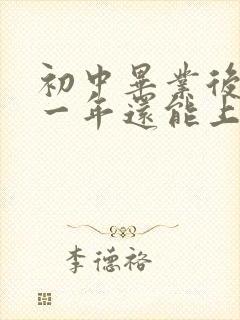 初中畢業後
一年還能上
李德裕